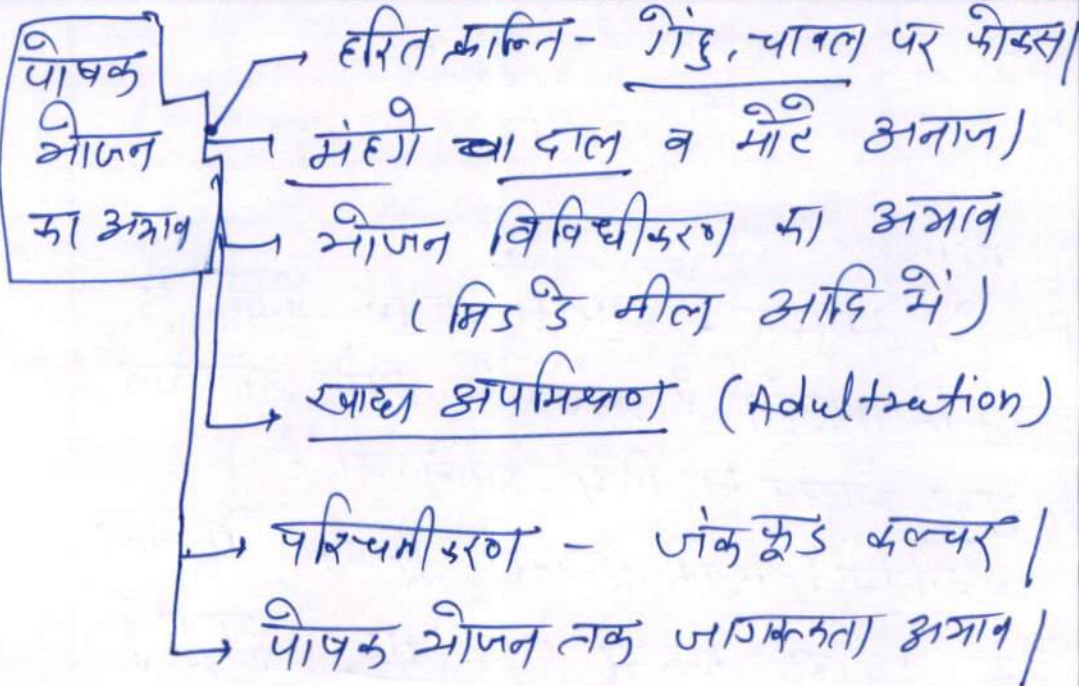 पोषक
भोजन
का अभाव
हरित क्रान्ति - गेंहु, चावल पर फोकस।
मंहगे दाल व मोटे अनाज।
भोजन विविधीकरण का अभाव
(मिड डे मील आदि में)
खाद्य अपमिश्रण (Adultration)
पश्चिमीकरण - जंक फूड कल्चर।
पोषक भोजन तक जागरूकता अभाव।